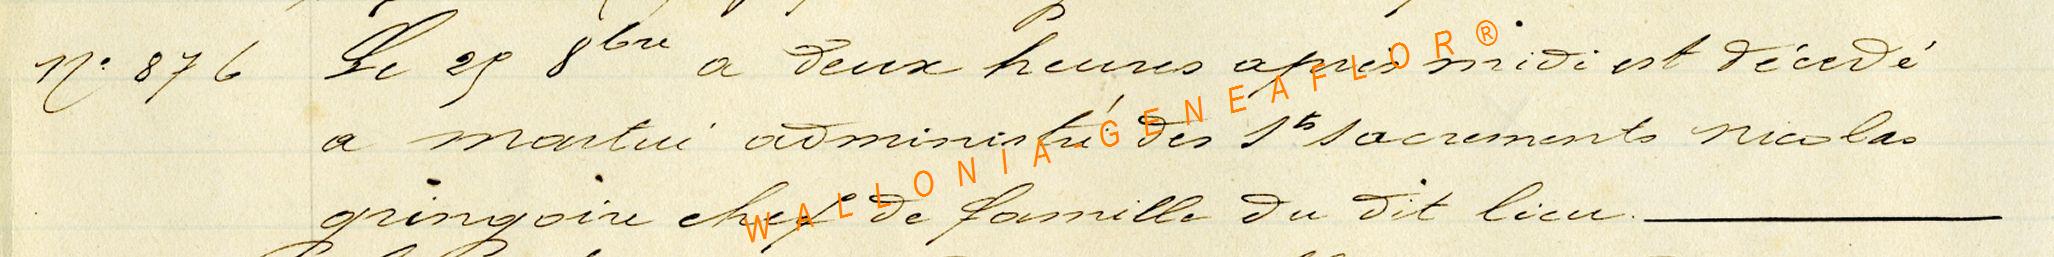 N° 876 Le 29 8bre a deux heures apres midi est décedé
a martui administré des Sts Sacrements nicolas
gringoire chef de famille du dit lieu.
WALLONIA-GENEAFLOR®